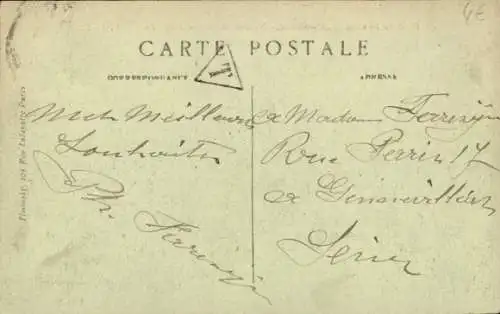 4€
CARTE POSTALE
CORRESPONDANCE
ADRESSE
T
Mes Meilleurs
Souhaits
Ph. Ferreyn
a Madame Ferreyn
Rue Perrin 17
a Gennevilliers
Seine
108 Rue Lafayette Paris